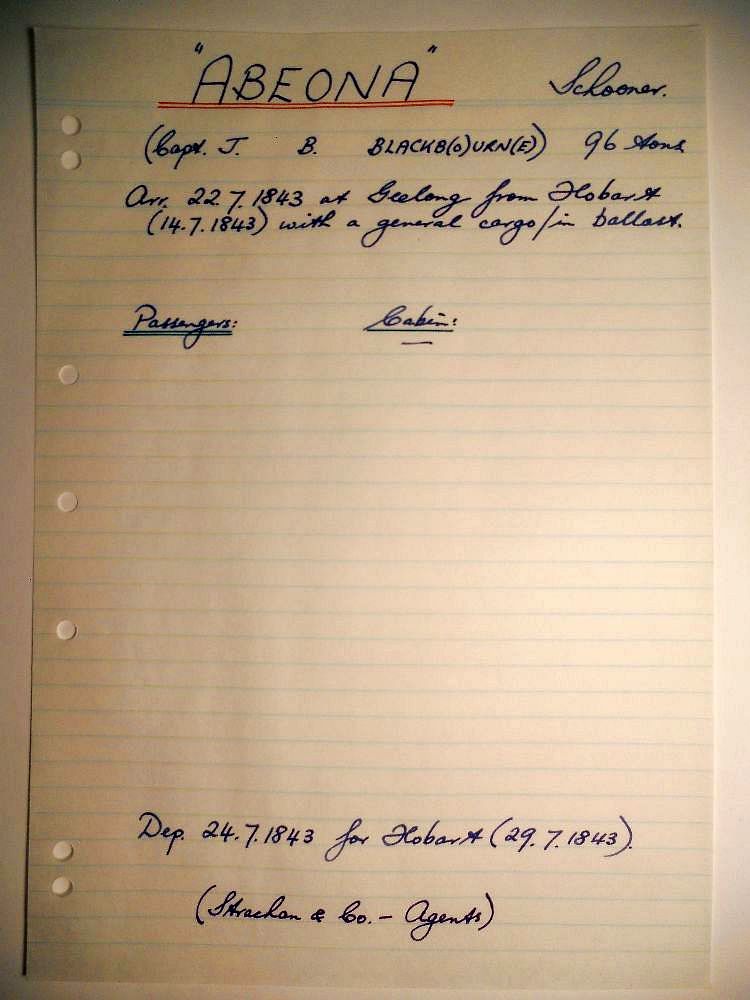 "ABEONA" Schooner.
(Capt. J. B. BLACKB(O)URN(E)) 96 tons
Arr. 22.7.1843 at Geelong from Hobart
(14.7.1843) with a general cargo/in ballast.
Passengers: Cabin:
Dep. 24.7.1843 for Hobart (29.7.1843).
(Strachan & Co. - Agents)